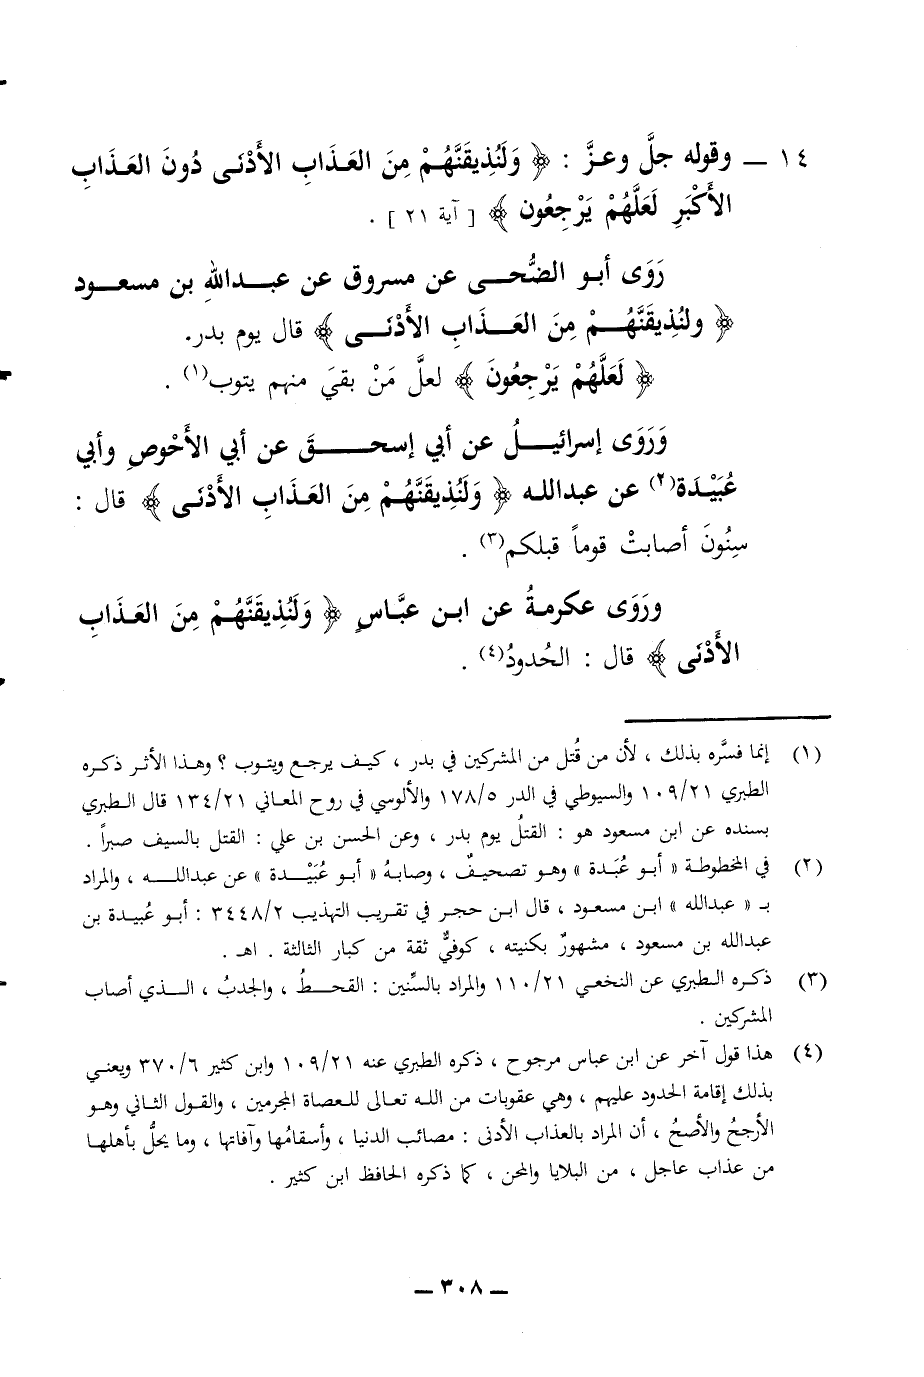 ١٤ ــ وقوله جلَّ وعزَّ : ﴿ وَلَنُذِيقَنَّهُمْ مِنَ العَذَابِ الأَدْنَى دُونَ العَذَابِ
الأَكْبَرِ لَعَلَّهُمْ يَرْجِعُون ﴾ [ آية ٢١ ] .
رَوَى أبو الضُّحى عن مسروق عن عبداللهِ بن مسعود
﴿ ولنُذِيقَنَّهُمْ مِنَ العَذَابِ الأَدْنَى ﴾ قال يوم بدر.
﴿ لَعَلَّهُمْ يَرْجِعُونَ ﴾ لعلَّ مَنْ بقيَ منهم يتوب(١) .
وَرَوَى إسرائيلُ عن أبي إسحقَ عن أبي الأَحْوصِ وأبي
عُبَيْدَة(٢) عن عبدالله ﴿ وَلَنُذِيقَنَّهُمْ مِنَ العَذَابِ الأَدْنَى ﴾ قال :
سِنُونَ أصابتْ قوماً قبلكم(٣) .
ورَوَى عكرمةُ عن ابن عبَّاسٍ ﴿ وَلَنُذِيقَنَّهُمْ مِنَ العَذَابِ
الأَدْنَى ﴾ قال : الحُدودُ(٤) .
(١) إنما فسَّره بذلك ، لأن من قُتل من المشركين في بدر ، كيف يرجع ويتوب ؟ وهذا الأثر ذكره
الطبري ١٠٩/٢١ والسيوطي في الدر ١٧٨/٥ والألوسي في روح المعاني ١٣٤/٢١ قال الطبري
بسنده عن ابن مسعود هو : القتلُ يوم بدر ، وعن الحسن بن علي : القتل بالسيف صبراً .
(٢) في المخطوطة « أبو عُبَدة » وهو تصحيفٌ ، وصابهُ « أبو عُبَيْدة » عن عبدالله ، والمراد
بـ « عبدالله » ابن مسعود ، قال ابن حجر في تقريب التهذيب ٣٤٤٨/٢ : أبو عُبيدة بن
عبدالله بن مسعود ، مشهورٌ بكنيته ، كوفيٌّ ثقة من كبار الثالثة . اهـ .
(٣) ذكره الطبري عن النخعي ١١٠/٢١ والمراد بالسِّنين : القحطُ ، والجدبُ ، الذي أصاب
المشركين .
(٤) هذا قول آخر عن ابن عباس مرجوح ، ذكره الطبري عنه ١٠٩/٢١ وابن كثير ٣٧٠/٦ ويعني
بذلك إقامة الحدود عليهم ، وهي عقوبات من الله تعالى للعصاة المجرمين ، والقول الثاني وهو
الأرجحُ والأصحُّ ، أن المراد بالعذاب الأدنى : مصائب الدنيا ، وأسقامُها وآفاتها ، وما يحلُّ بأهلها
من عذاب عاجل ، من البلايا والمحن ، كما ذكره الحافظ ابن كثير .
ــ ٣٠٨ ــ